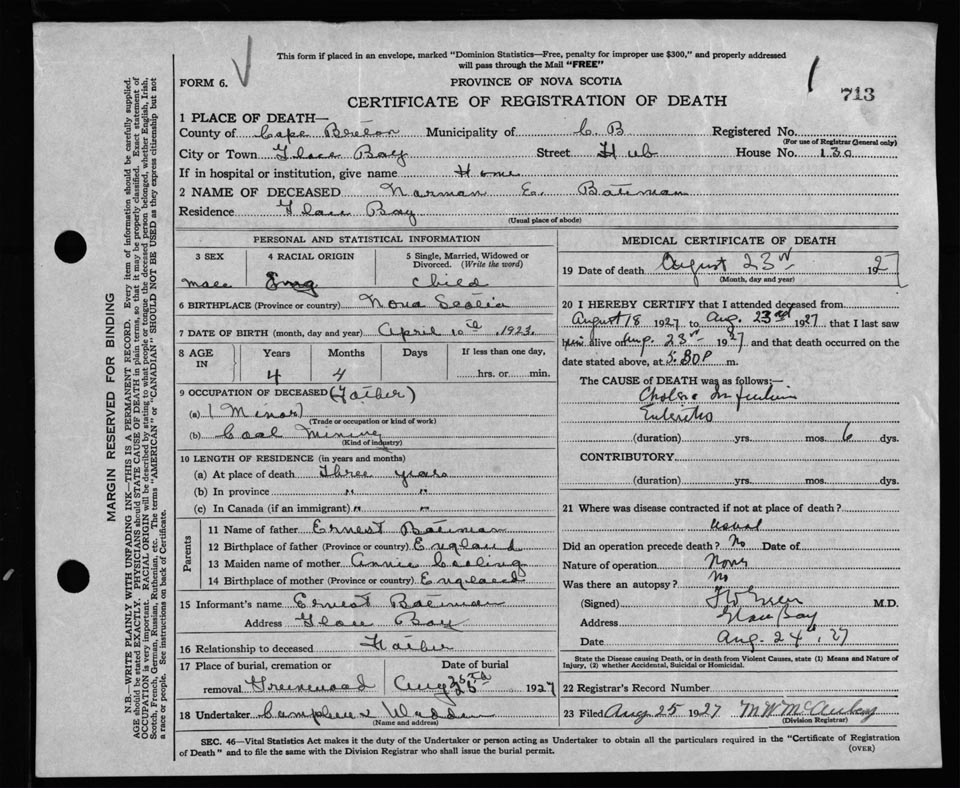 This form if placed in an envelope, marked "Dominion Statistics—Free, penalty for improper use $300," and properly addressed
will pass through the Mail "FREE"
FORM 6.
PROVINCE OF NOVA SCOTIA
713
CERTIFICATE OF REGISTRATION OF DEATH
1 PLACE OF DEATH—
County of Cape Breton Municipality of C. B Registered No.
(For use of Registrar General only)
City or Town Glace Bay Street Hub House No. 130
If in hospital or institution, give name Home
2 NAME OF DECEASED Norman E. Bateman
Residence Glace Bay
(Usual place of abode)
PERSONAL AND STATISTICAL INFORMATION
3 SEX 4 RACIAL ORIGIN 5 Single, Married, Widowed or
Divorced. (Write the word)
Male Eng Child
6 BIRTHPLACE (Province or country) Nova Scotia
7 DATE OF BIRTH (month, day and year) April 10th, 1923
8 AGE IN Years Months Days If less than one day,
4 4 hrs. or min.
9 OCCUPATION OF DECEASED (Father)
(a) (Miner)
(Trade or occupation or kind of work)
(b) Coal Mining
(Kind of industry)
10 LENGTH OF RESIDENCE (in years and months)
(a) At place of death Three years
(b) In province " "
(c) In Canada (if an immigrant) " "
Parents
11 Name of father Ernest Bateman
12 Birthplace of father (Province or country) England
13 Maiden name of mother Annie
14 Birthplace of mother (Province or country) England
15 Informant's name Ernest Bateman
Address Glace Bay
16 Relationship to deceased Father
17 Place of burial, cremation or Date of burial
removal Greenwood Aug 25th 1927
18 Undertaker Campbell
(Name and address)
MEDICAL CERTIFICATE OF DEATH
19 Date of death August 23rd 1927
(Month, day and year)
20 I HEREBY CERTIFY that I attended deceased from
August 18 1927 to Aug. 23rd 1927 that I last saw
him alive on Aug. 23rd 1927 and that death occurred on the
date stated above, at 5.30 P m.
The CAUSE OF DEATH was as follows:—
Cholera Infantum
Enteritis
(duration) yrs. mos. 6 dys.
CONTRIBUTORY
(duration) yrs. mos. dys.
21 Where was disease contracted if not at place of death?
usual
Did an operation precede death? No Date of
Nature of operation None
Was there an autopsy? No
(Signed) M.D.
Address Glace Bay
Date Aug. 24th, 27
State the Disease causing Death, or in death from Violent Causes, state (1) Means and Nature of
Injury, (2) whether Accidental, Suicidal or Homicidal.
22 Registrar's Record Number
23 Filed Aug 25 1927
(Division Registrar)
SEC. 46—Vital Statistics Act makes it the duty of the Undertaker or person acting as Undertaker to obtain all the particulars required in the "Certificate of Registration
of Death" and to file the same with the Division Registrar who shall issue the burial permit.
(OVER)
MARGIN RESERVED FOR BINDING
N.B.—WRITE PLAINLY WITH UNFADING INK—THIS IS A PERMANENT RECORD. Every item of information should be carefully supplied.
AGE should be stated EXACTLY. PHYSICIANS should STATE CAUSE OF DEATH in plain terms, so that it may be properly classified. Exact statement of
OCCUPATION is very important. RACIAL ORIGIN will be described by stating to what people or tongue the deceased person belonged, whether English, Irish,
Scotch, French, German, Russian, Ruthenian, etc. The terms "AMERICAN" or "CANADIAN" SHOULD NOT BE USED as they express citizenship but not
a race or people. See instructions on back of Certificate.